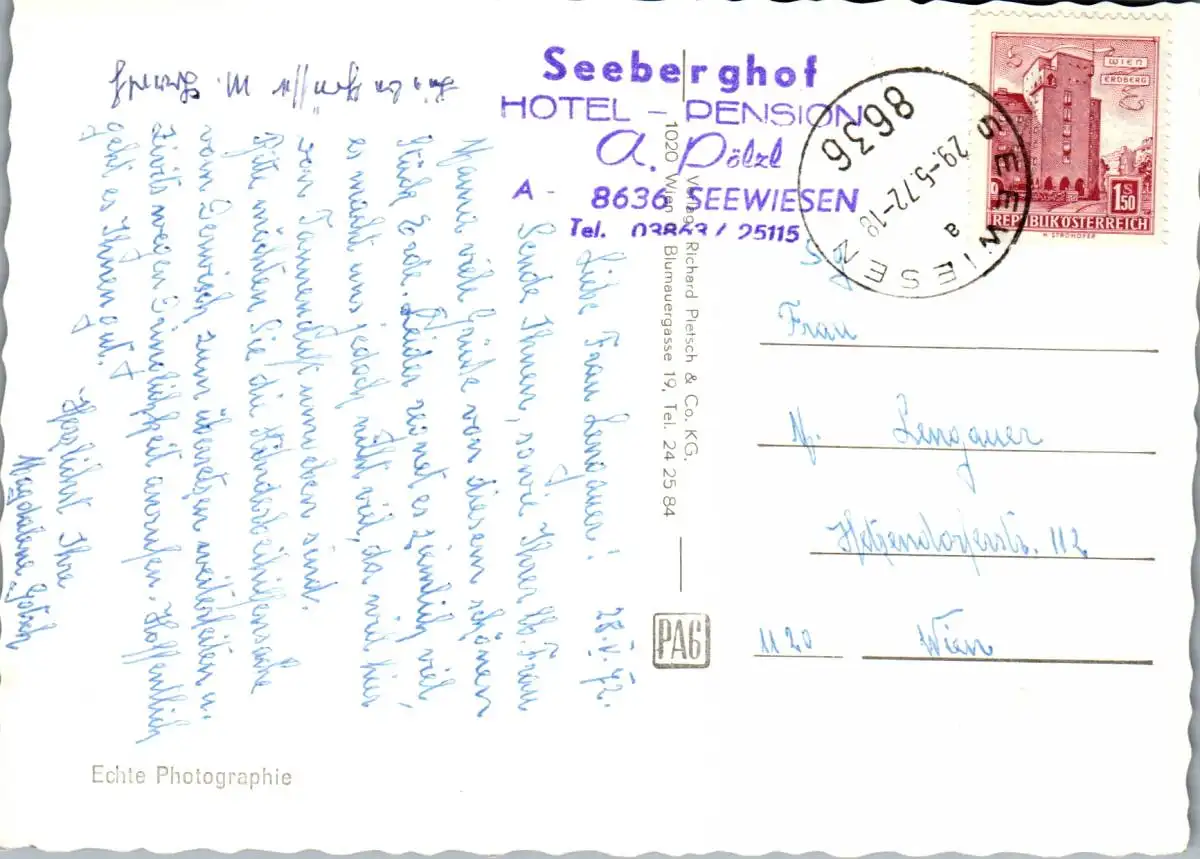 Seeberghof
HOTEL - PENSION
A. Pölzl
A - 8636 SEEWIESEN
Tel. 03863 / 25115
8636
SEEWIESEN
29.-5.72-18
a
WIEN
ERDBERG
1S50
REPUBLIK ÖSTERREICH
H. STROHOFER
28.V.72.
Liebe Frau Lengauer!
Sende Ihnen, sowie Ihrer lb. Frau
Mama viele Grüße von diesem schönen
Stück Erde. Leider regnet es ziemlich viel,
es macht uns jedoch nicht viel, da wir hier
von Tannenduft umgeben sind.
Bitte möchten Sie die
vom zum übersetzen weiterleiten u.
wegen Dringlichkeit anrufen. Hoffentlich
geht es Ihnen gut.
Herzlichst Ihre
Magdalena
M.
Verlag Richard Pietsch & Co. KG.
1020 Wien Blumauergasse 19, Tel. 24 25 84
PAG
Frau
N. Lengauer
Hetzendorferstr. 112
1120 Wien
Echte Photographie